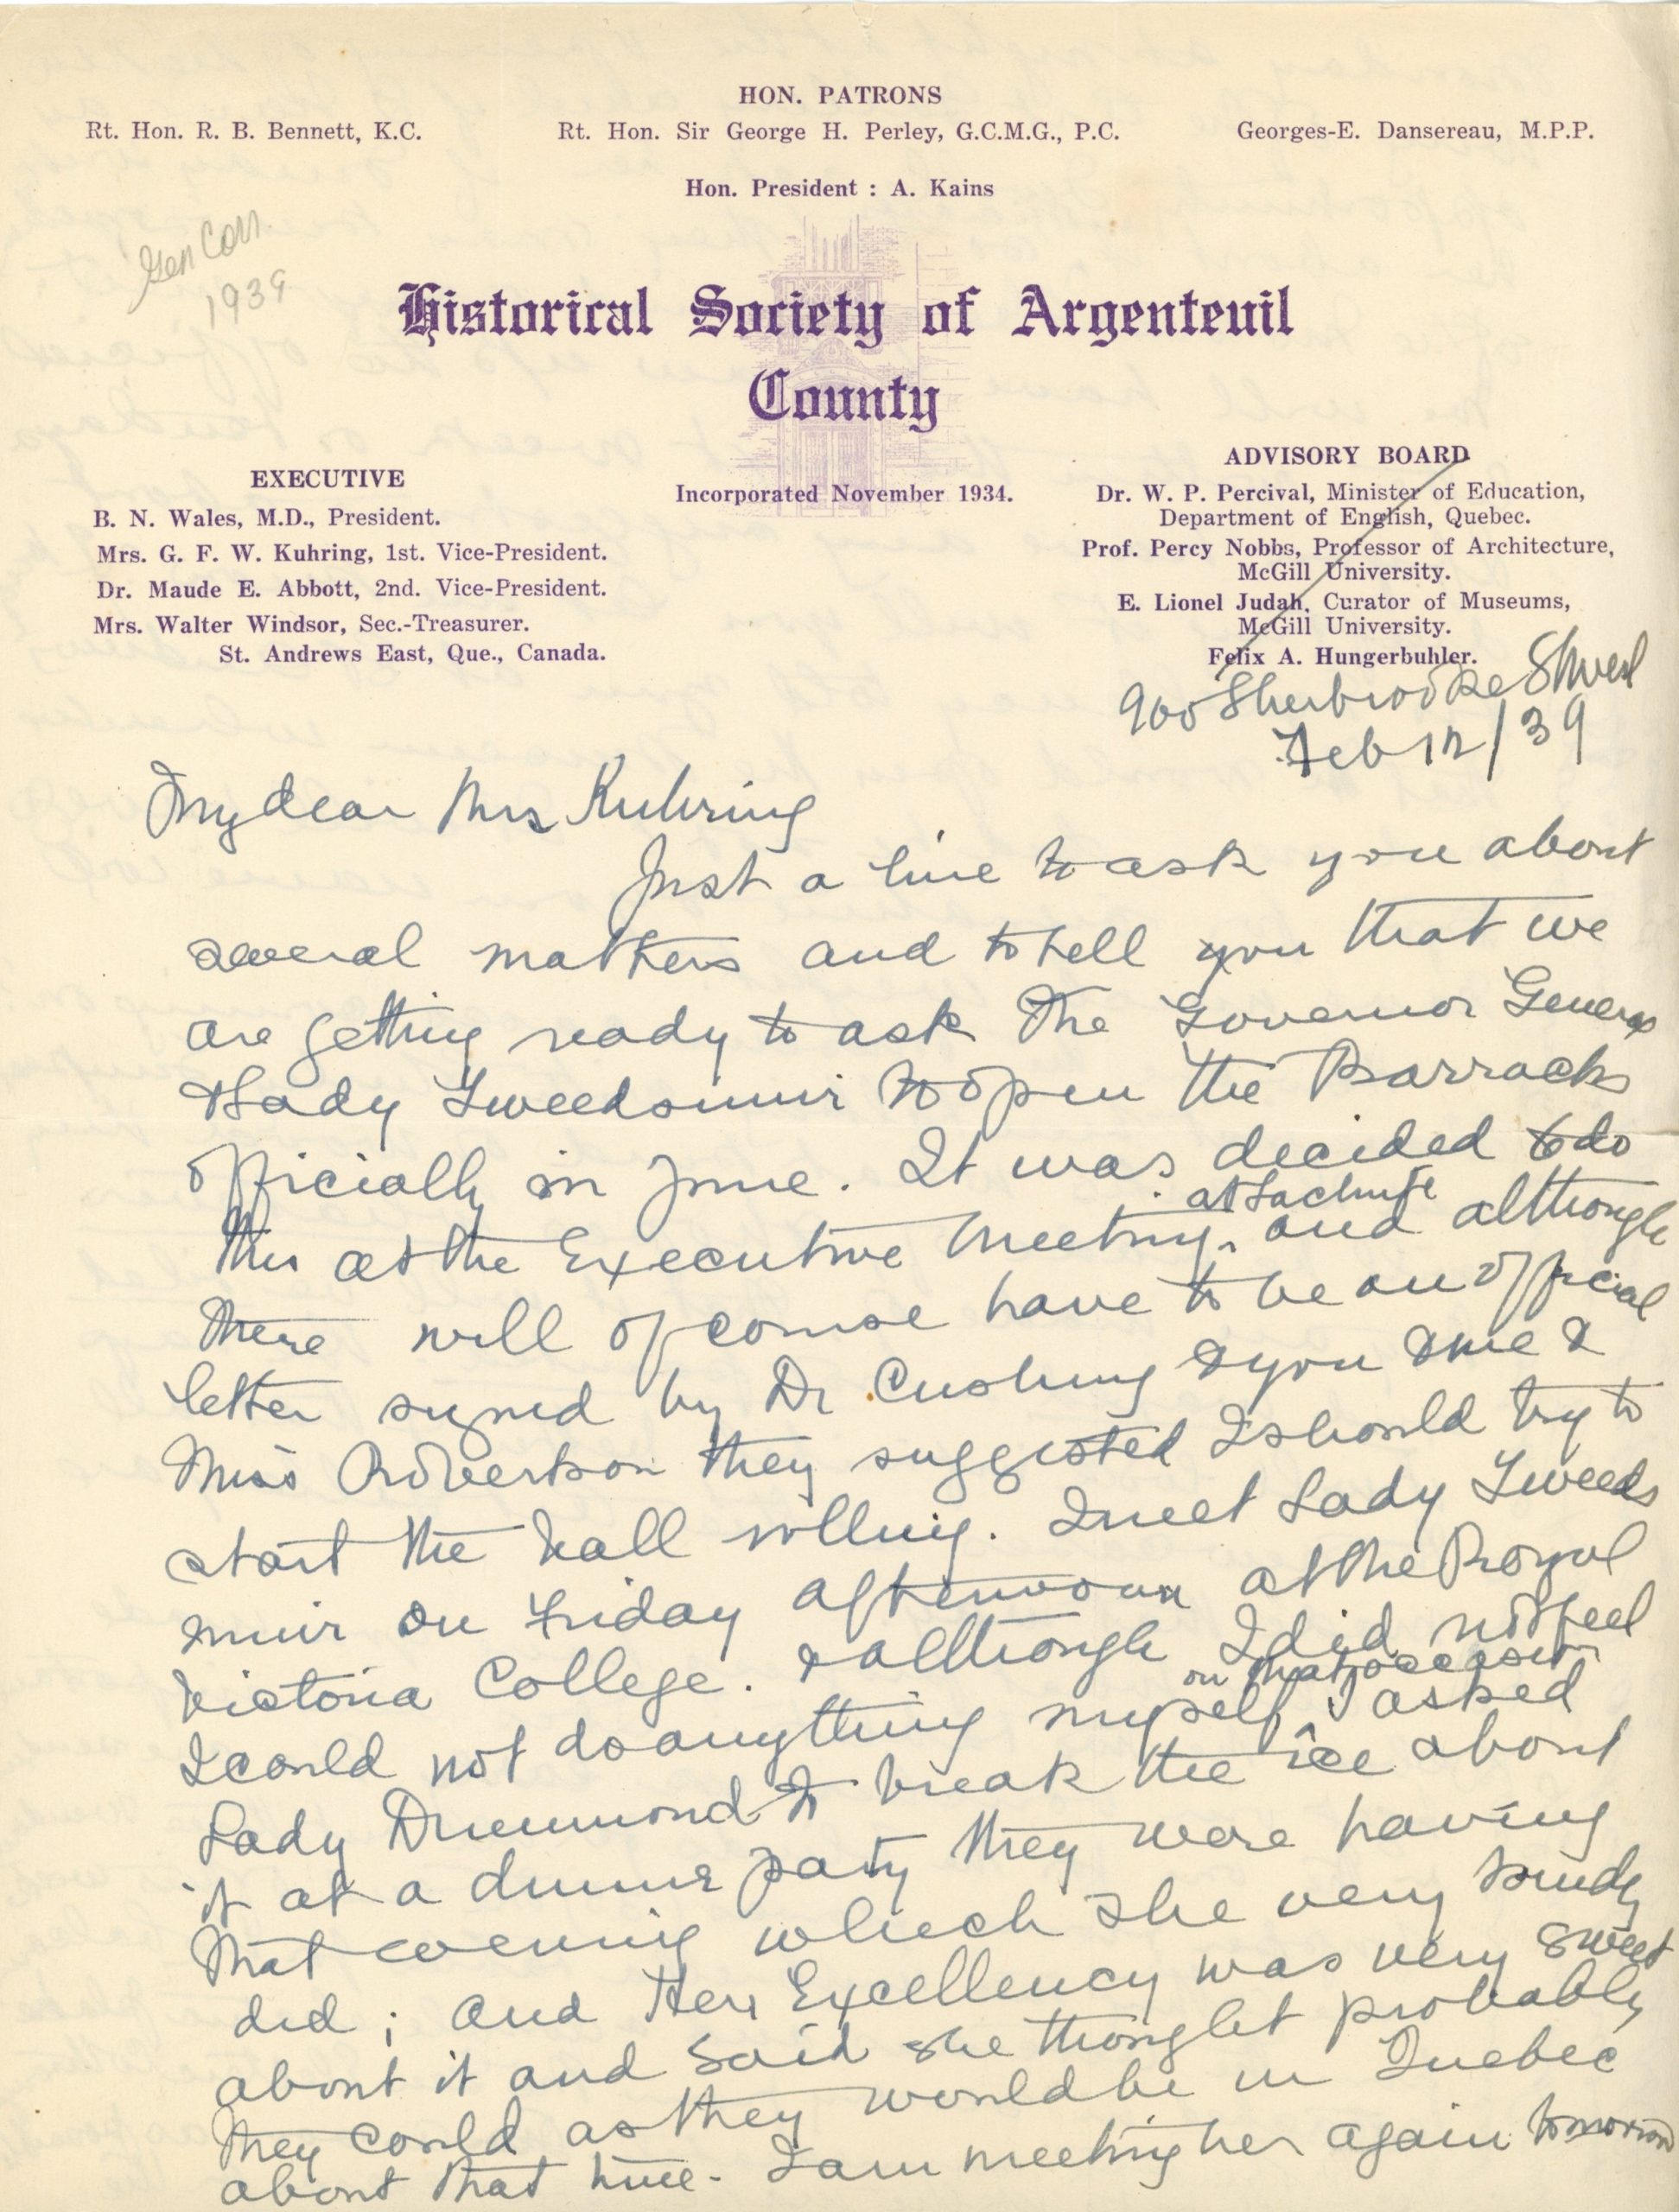 HON. PATRONS
Rt. Hon. R. B. Bennett, K.C. Rt. Hon. Sir George H. Perley, G.C.M.G., P.C. Georges-E. Dansereau, M.P.P.
Hon. President : A. Kains
Gen Corr.
1939
Historical Society of Argenteuil
County
Incorporated November 1934.
EXECUTIVE
B. N. Wales, M.D., President.
Mrs. G. F. W. Kuhring, 1st. Vice-President.
Dr. Maude E. Abbott, 2nd. Vice-President.
Mrs. Walter Windsor, Sec.-Treasurer.
St. Andrews East, Que., Canada.
ADVISORY BOARD
Dr. W. P. Percival, Minister of Education,
Department of English, Quebec.
Prof. Percy Nobbs, Professor of Architecture,
McGill University.
E. Lionel Judah, Curator of Museums,
McGill University.
Felix A. Hungerbuhler.
900 Sherbrooke St West
Feb 12/39
My dear Mrs Kuhring
Just a line to ask you about
several matters and to tell you that we
are getting ready to ask The Governor General
& Lady Tweedsmuir to open the Barracks
officially in June. It was decided to do
this at the Executive Meeting at Lachute and although
there will of course have to be an official
letter signed by Dr Cushing & you & me &
Miss Robertson they suggested I should try to
start the ball rolling. I met Lady Tweeds
muir on Friday afternoon at the Royal
Victoria College. & although I did not feel
I could not do anything myself on that occasion I asked
Lady Drummond to break the ice about
it at a dinner party they were having
that evening which she very kindly
did ; and Her Excellency was very sweet
about it and said she thought probably
they could as they would be in Quebec
about that time. I am meeting her again tomorrow